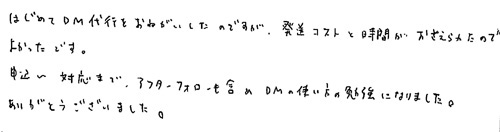 はじめてDM代行をおねがいしたのですが、発送コストと時間がおさえられたので
よかったです。
申込〜対応まで、アフターフォローも含めDMの使い方の勉強になりました。
ありがとうございました。